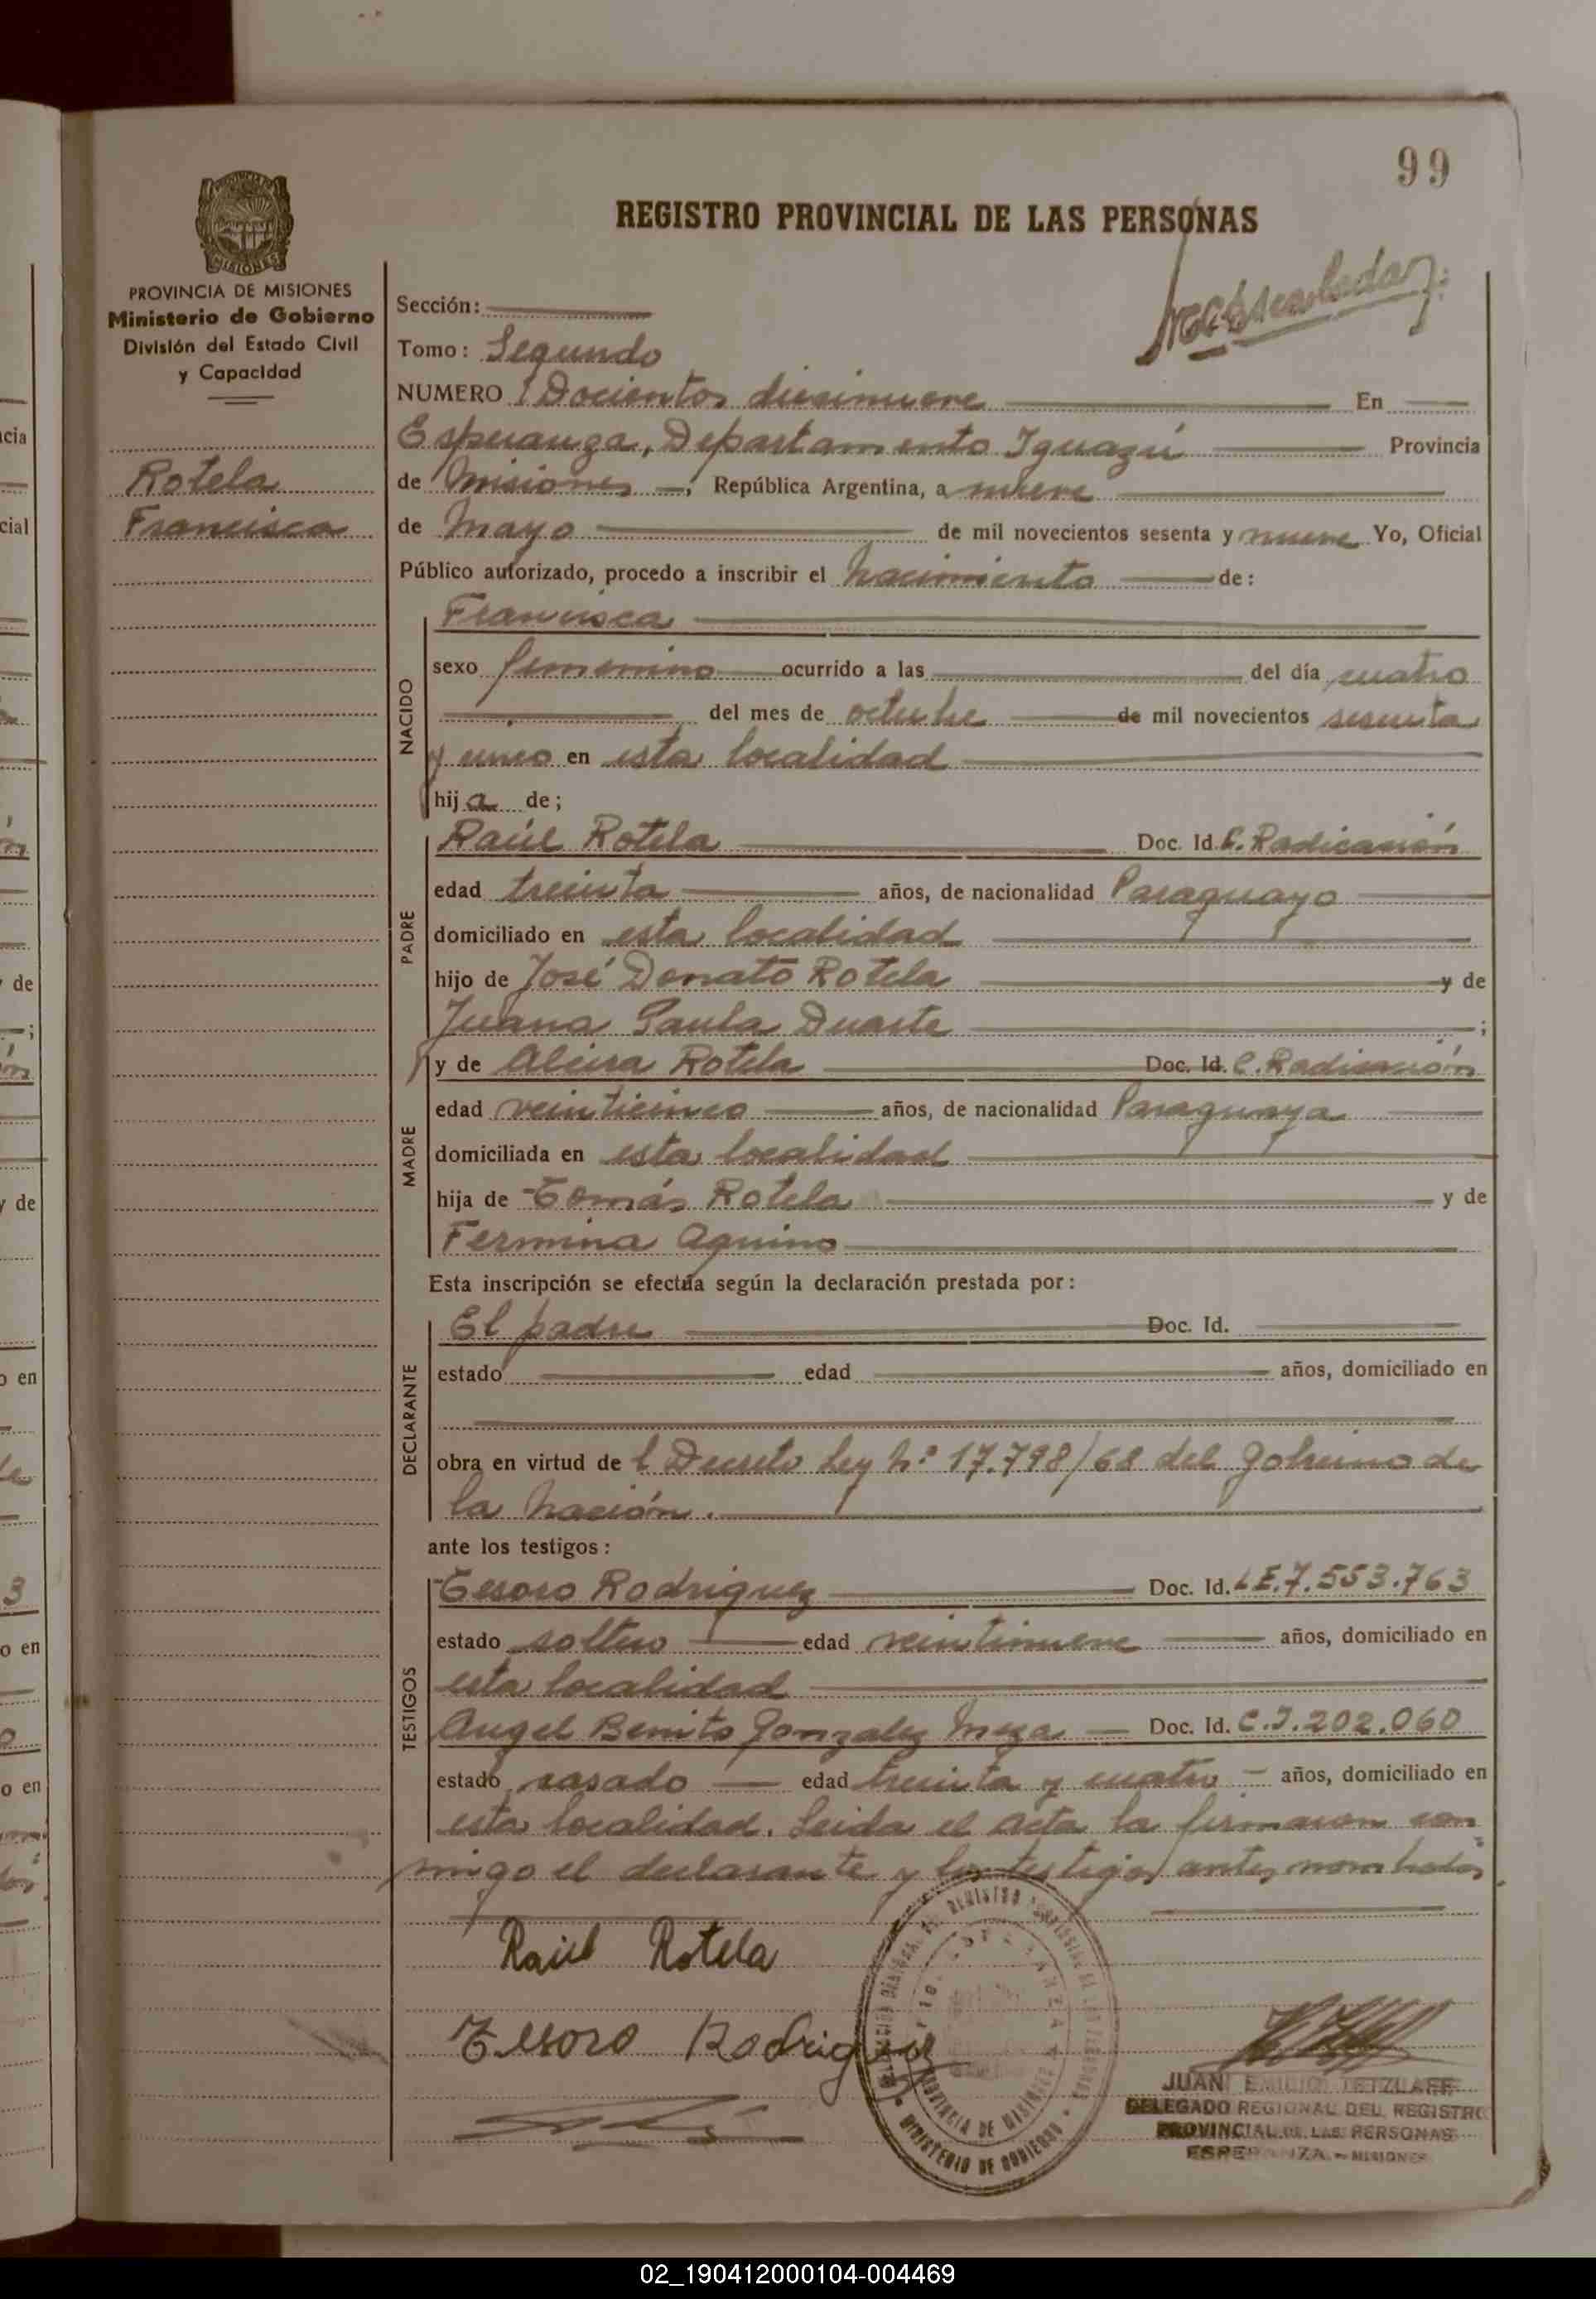 99
REGISTRO PROVINCIAL DE LAS PERSONAS
PROVINCIA DE MISIONES
Ministerio de Gobierno
División del Estado Civil
y Capacidad
Rotela
Francisca
Sección:
Tomo: Segundo
NUMERO Docientos diecinueve En
Esperanza, Departamento Iguazú Provincia
de Misiones -, República Argentina, a nueve
de Mayo de mil novecientos sesenta y nueve Yo, Oficial
Público autorizado, procedo a inscribir el nacimiento de:
NACIDO
Francisca
sexo femenino ocurrido a las del día cuatro
del mes de octubre de mil novecientos sesenta
y uno en esta localidad
hija de;
PADRE
Raúl Rotela Doc. Id. C. Radicación
edad treinta años, de nacionalidad Paraguayo
domiciliado en esta localidad
hijo de José Donato Rotela y de
Juana Paula Duarte ;
MADRE
y de Alcira Rotela Doc. Id. C. Radicación
edad veinticinco años, de nacionalidad Paraguaya
domiciliada en esta localidad
hija de Tomás Rotela y de
Fermina Aquino
Esta inscripción se efectúa según la declaración prestada por:
DECLARANTE
El padre Doc. Id.
estado edad años, domiciliado en
obra en virtud de l Decreto Ley Nº 17.798/68 del Gobierno de
la Nación.
ante los testigos:
TESTIGOS
Tesoro Rodriguez Doc. Id. L.E.7.553.763
estado soltero edad veintinueve años, domiciliado en
esta localidad
Angel Benito Gonzalez Meza - Doc. Id. C.I.202.060
estado casado - edad treinta y cuatro - años, domiciliado en
esta localidad. Leida el acta la firmaron con
migo el declarante y los testigos antes nombrados
Raúl Rotela
Tesoro Rodriguez
PROVINCIA DE MISIONES
MINISTERIO DE GOBIERNO
JUAN EMILIO TETZLAFF
DELEGADO REGIONAL DEL REGISTRO
PROVINCIAL DE LAS PERSONAS
ESPERANZA - MISIONES
02_190412000104-004469